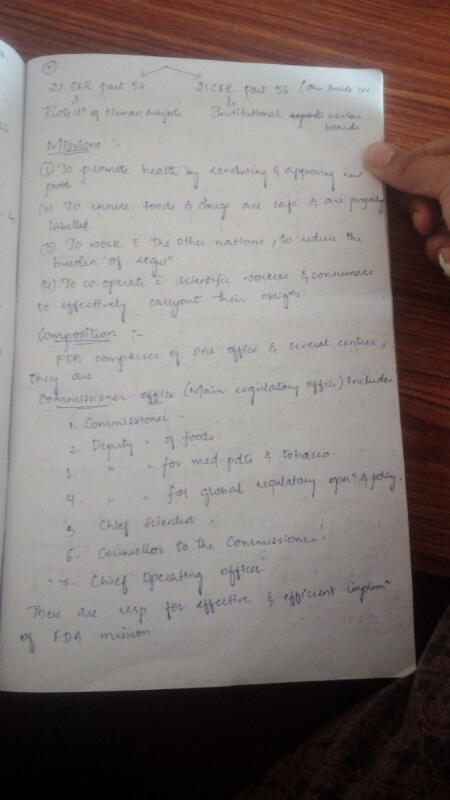 21 CFR part 50 21 CFR part 56
Protectⁿ of Human subjects Institutional review
boards
Missions :-
(1) To promote health by reviewing & approving new
pdts
(2) To ensure foods & drugs are safe & are properly
labelled.
(3) To work c̄ the other nations, to reduce the
burden of regⁿ
(4) To co-operate c̄ scientific workers & consumers
to effectively carryout their obligⁿs.
Composition :-
FDA comprises of one office & several centres,
they are
Commissioner office (Main regulatory office) Includes
1. Commissioner.
2. Deputy " of foods
3 " " for med. pdts & tobacco.
4. " " for global regulatory operⁿ & policy.
5 Chief scientist.
6. Counsellor to the Commissioner.
7- Chief Operating officer
These are resp for effective & efficient implemⁿ
of FDA mission